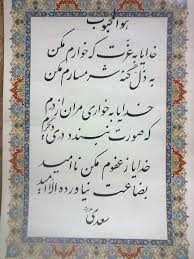 هوالمحبوب
خدایا به عزت که خوارم مکن
به ذل گنه شرمسارم مکن
خدایا به خواری مران از درم
که صورت نبندد دری دیگرم
خدایا ز عفوم مکن ناامید
بضاعت نیاوردم الا امید
سعدی